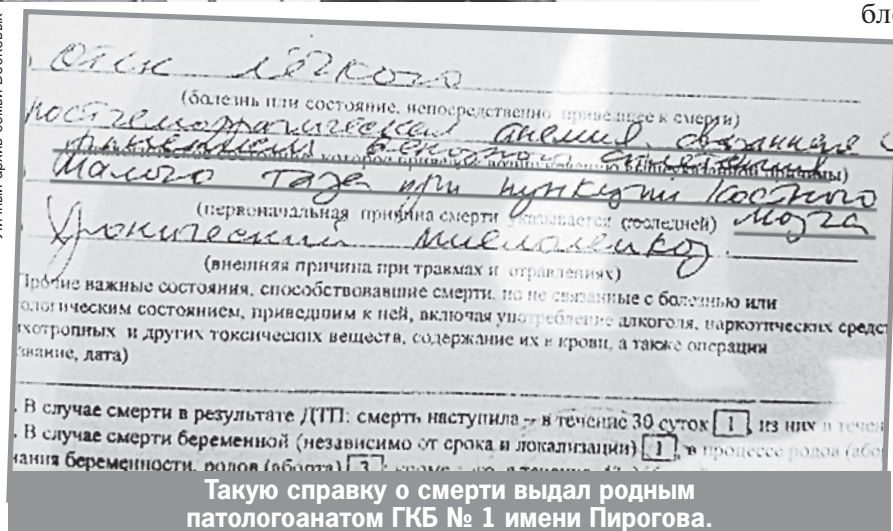 бл
Отек лёгкого
(болезнь или состояние, непосредственно приведшее к смерти)
постгеморрагическая анемия, связанная с
ранением венозного сплетения
малого таза при пункции костного
(первоначальная причина смерти указывается последней) мозга
Хронический миелолейкоз.
(внешняя причина при травмах и отравлениях)
Прочие важные состояния, способствовавшие смерти, но не связанные с болезнью или
ологическим состоянием, приведшим к ней, включая употребление алкоголя, наркотических средст
хотропных и других токсических веществ, содержание их в крови, а также операции
звание, дата)
. В случае смерти в результате ДТП: смерть наступила – в течение 30 суток 1, из них в течен
. В случае смерти беременной (независимо от срока и локализации) 1, в процессе родов (або
ания беременности, родов (аборта) 3
Такую справку о смерти выдал родным
патологоанатом ГКБ № 1 имени Пирогова.